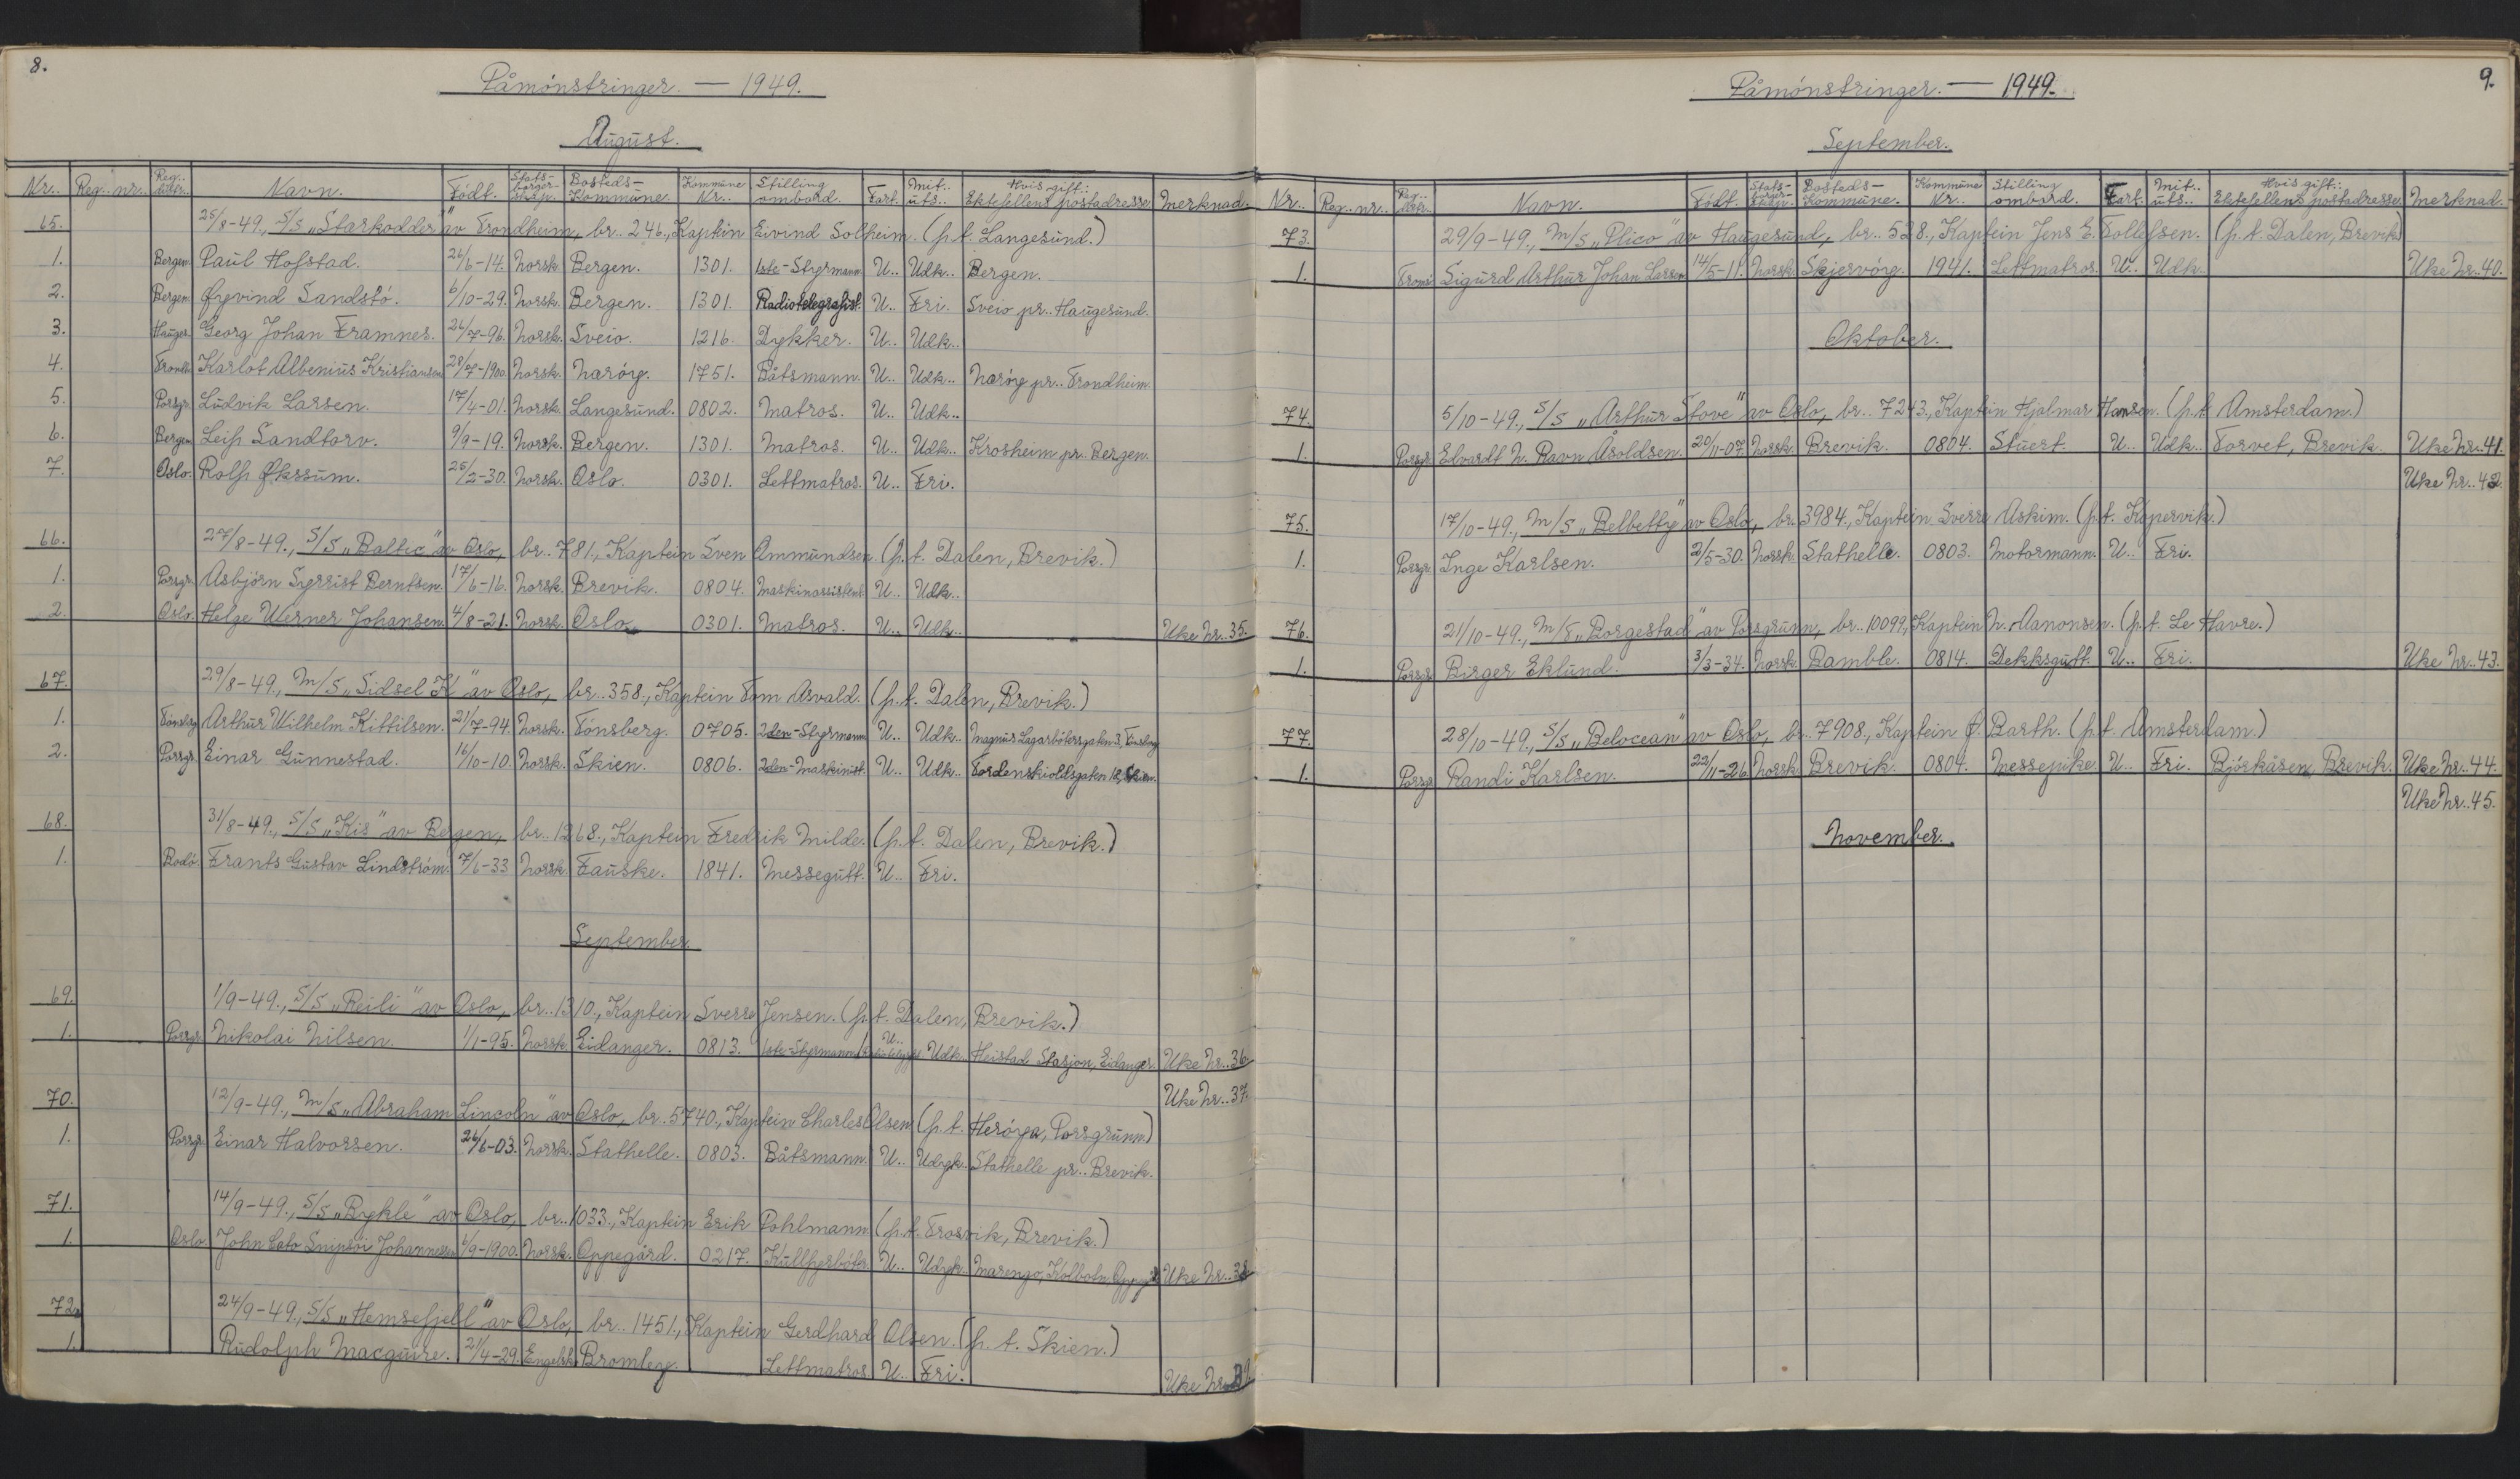 8.
Påmónstringer. — 1949.
August.
Nr.. Reg.. nr.. Reg.. distr.. Navn. Födt. Stats-borger-skap. Bosteds-Kommune. Kommune Nr.. Stilling ombord. Fart. Mit.. uts.. Hvis gift.: Ektefellens postadresse. Merknad.
65. 25/8-49., S/S „Starkodder" av Trondheim, br.. 246., Kaptein Eivind Solheim. (p.t. Langesund.)
1. Bergen. Paul Hofstad. 26/6-14. Norsk. Bergen. 1301. 1ste-Styrmann. U.. Udk.. Bergen.
2. Bergen. Øyvind Sandstó. 6/10-29. Norsk. Bergen. 1301. Radiotelegrafist. U.. Fri. Sveio pr.. Haugesund.
3. Hauges. Georg Johan Framnes. 26/7-96. Norsk. Sveio. 1216. Dykker. U.. Udk..
4. Trondh. Karlot Albenius Kristiansen 28/7-1900. Norsk. Næróy. 1751. Båtsmann. U.. Udk.. Næróy pr.. Trondheim.
5. Porsgr. Ludvik Larsen. 17/4-01. Norsk. Langesund. 0802. Matros. U.. Udk..
6. Bergen. Leif Sandtorv. 9/9-19. Norsk. Bergen. 1301. Matros. U.. Udk.. Krosheim pr. Bergen.
7. Oslo. Rolf Økssum. 25/2-30. Norsk. Oslo. 0301. Lettmatros. U.. Fri.
66. 27/8-49., S/S „Baltic" av Oslo, br.. 781., Kaptein Sven Ommundsen. (p.t. Dalen, Brevik.)
1. Porsgr. Asbjörn Syrrist Berntsen. 17/6-16. Norsk. Brevik. 0804. Maskinassistent. U.. Udk..
2. Oslo. Helge Werner Johansen. 4/8-21. Norsk. Oslo. 0301. Matros. U.. Udk.. Uke Nr.. 35.
67. 29/8-49., M/S „Sidsel K" av Oslo, br.. 358., Kaptein Tom Asvald. (p.t. Dalen, Brevik.)
1. Tönsberg Arthur Wilhelm Kittilsen. 21/7-94. Norsk. Tönsberg. 0705. 2den-Styrmann U.. Udk.. Magnus Lagarbótersgaten 3, Tönsberg
2. Porsgr. Einar Gunnestad. 16/10-10. Norsk. Skien. 0806. 2den-Maskinist. U.. Udk.. Tordenskioldsgaten 18, Skien.
68. 31/8-49., S/S „Kis" av Bergen, br.. 1268., Kaptein Fredrik Milde. (p.t. Dalen, Brevik.)
1. Bodö. Frants Gustav Lindström. 7/6-33 Norsk. Fauske. 1841. Messegutt. U.. Fri.
September.
69. 1/9-49., S/S „Reili" av Oslo, br.. 1310., Kaptein Sverre Jensen. (p.t. Dalen, Brevik.)
1. Porsgr. Nikolai Nilsen. 1/1-95. Norsk. Eidanger. 0813. 1ste-Styrmann U.. Udk.. Heistad Stasjon, Eidanger. Uke Nr.. 36.
Uke Nr.. 37.
70. 12/9-49., M/S „Abraham Lincoln" av Oslo, br.. 5740., Kaptein Charles Olsen (p.t. Heröya, Porsgrunn.)
1. Porsgr. Einar Halvorsen. 26/6-03. Norsk. Stathelle. 0803. Båtsmann. U.. Udyk. Stathelle pr.. Brevik.
71. 14/9-49., S/S „Bykle" av Oslo, br.. 1033., Kaptein Erik Pohlmann (p.t. Trosvik, Brevik.)
1. Oslo. John Cato Snipsöi Johannessen 6/9-1900. Norsk. Oppegård. 0217. Kullfyrböter. U.. Udyk. Marengo, Kolbotn, Uke Nr.. 38
72. 24/9-49., S/S „Hemsefjell" av Oslo, br.. 1451., Kaptein Gerdhard Olsen. (p.t. Skien.)
1. Rudolph Macguire. 21/4-29. Engelsk. Bromley. Lettmatros. U.. Fri. Uke Nr.. 39
9.
Påmónstringer. — 1949.
September.
Nr.. Reg.. nr.. Reg.. distr.. Navn. Födt. Stats-borger-skap. Bosteds-Kommune. Kommune Nr.. Stilling ombord. Fart. Mit.. uts.. Hvis gift.: Ektefellens postadresse. Merknad.
73. 29/9-49., M/S „Plico" av Haugesund, br.. 528., Kaptein Jens E. Tollefsen. (p.t. Dalen, Brevik)
1. Tromsö Sigurd Arthur Johan Larsen 14/5-11. Norsk. Skjervöy. 1941. Lettmatros. U.. Udk. Uke Nr.. 40.
Oktober.
74. 5/10-49., S/S „Arthur Stove" av Oslo, br.. 7243., Kaptein Hjalmar Hansen. (p.t. Amsterdam.)
1. Porsgr. Edvardt N. Ravn Åsoldsen. 20/11-07. Norsk. Brevik. 0804. Stuert. U.. Udk.. Torvet, Brevik. Uke Nr.. 41.
Uke Nr.. 42.
75. 17/10-49., M/S „Belbetty" av Oslo, br. 3984., Kaptein Sverre Askim. (p.t. Kopervik.)
1. Porsgr. Inge Karlsen. 2/5-30. Norsk. Stathelle. 0803. Motormann. U.. Fri.
76. 21/10-49., M/S „Borgestad" av Porsgrunn, br.. 10099., Kaptein N. Aanonsen. (p.t. Le Havre.)
1. Porsgr. Birger Eklund. 3/3-34. Norsk. Bamble. 0814. Dekksgutt. U.. Fri. Uke Nr.. 43.
77. 28/10-49., S/S „Belocean" av Oslo, br.. 7908., Kaptein Ø. Barth. (p.t. Amsterdam.)
1. Porsgr. Randi Karlsen. 22/11-26. Norsk. Brevik. 0804. Messepike. U.. Fri. Björkåsen, Brevik. Uke Nr.. 44.
Uke Nr.. 45.
November.